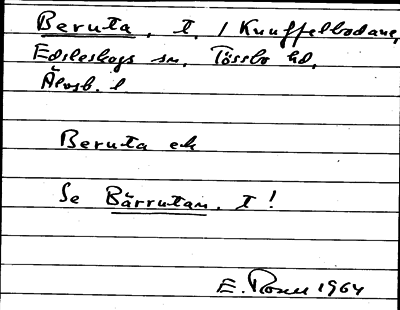 Beruta, t. / Knuffelbodane,
Edsleskogs sn. Tössbo hd.
Älvsb. l
Beruta ek
Se Bärrutan. t!
E. Rosell 1964